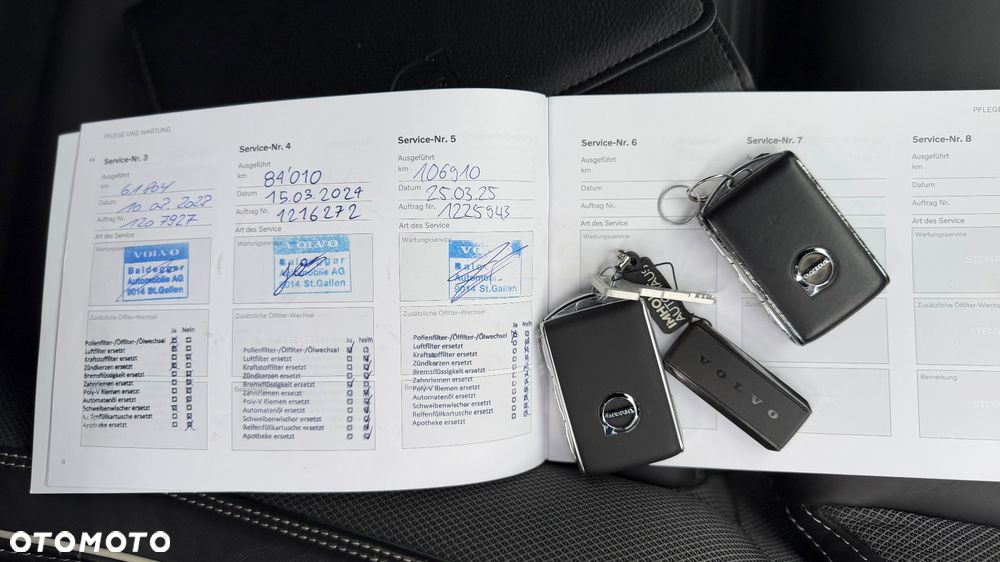 PFLEGE UND WARTUNG
Service-Nr. 3
Ausgeführt
km 61804
Datum
Auftrag Nr. 120 7927
Art des Service
Wartungsservice
VOLVO
Baldegger
Automobile AG
9014 St.Gallen
Zusätzliche Ölfilter-Wechsel
Ja Nein
Pollenfilter-/Ölfilter-/Ölwechsel
Luftfilter ersetzt
Kraftstoffilter ersetzt
Zündkerzen ersetzt
Bremsflüssigkeit ersetzt
Zahnriemen ersetzt
Poly-V Riemen ersetzt
Automatenöl ersetzt
Scheibenwischer ersetzt
Reifenfüllkartusche ersetzt
Apotheke ersetzt
8
Service-Nr. 4
Ausgeführt
km 84'010
Datum 15.03.2024
Auftrag Nr. 1216272
Art des Service
Wartungsservice
VOLVO
Automobile AG
9014 St.Gallen
Zusätzliche Ölfilter-Wechsel
Ja Nein
Pollenfilter-/Ölfilter-/Ölwechsel
Luftfilter ersetzt
Kraftstoffilter ersetzt
Zündkerzen ersetzt
Bremsflüssigkeit ersetzt
Zahnriemen ersetzt
Poly-V Riemen ersetzt
Automatenöl ersetzt
Scheibenwischer ersetzt
Reifenfüllkartusche ersetzt
Apotheke ersetzt
Service-Nr. 5
Ausgeführt
km 106910
Datum 25.03.25
Auftrag Nr. 1225943
Art des Service
Wartungsservice
VOLVO
9014 St.Gallen
Zusätzliche Ölfilter-Wechsel
Ja Nein
Pollenfilter-/Ölfilter-/Ölwechsel
Luftfilter ersetzt
Kraftstoffilter ersetzt
Zündkerzen ersetzt
Bremsflüssigkeit ersetzt
Zahnriemen ersetzt
Poly-V Riemen ersetzt
Automatenöl ersetzt
Scheibenwischer ersetzt
Reifenfüllkartusche ersetzt
Apotheke ersetzt
Service-Nr. 6
Ausgeführt
km
Datum
Auftrag Nr.
Art des Service
Wartungsservice
Service-Nr. 7
Ausgeführt
PFLEGE
Service-Nr. 8
Ausgeführt
km
Datum
Auftrag Nr.
Art des Service
Wartungsservice
Zusätzliche Ölfilter-Wechsel
Bemerkung
VOLVO
VOLVO
VOLVO
OTOMOTO